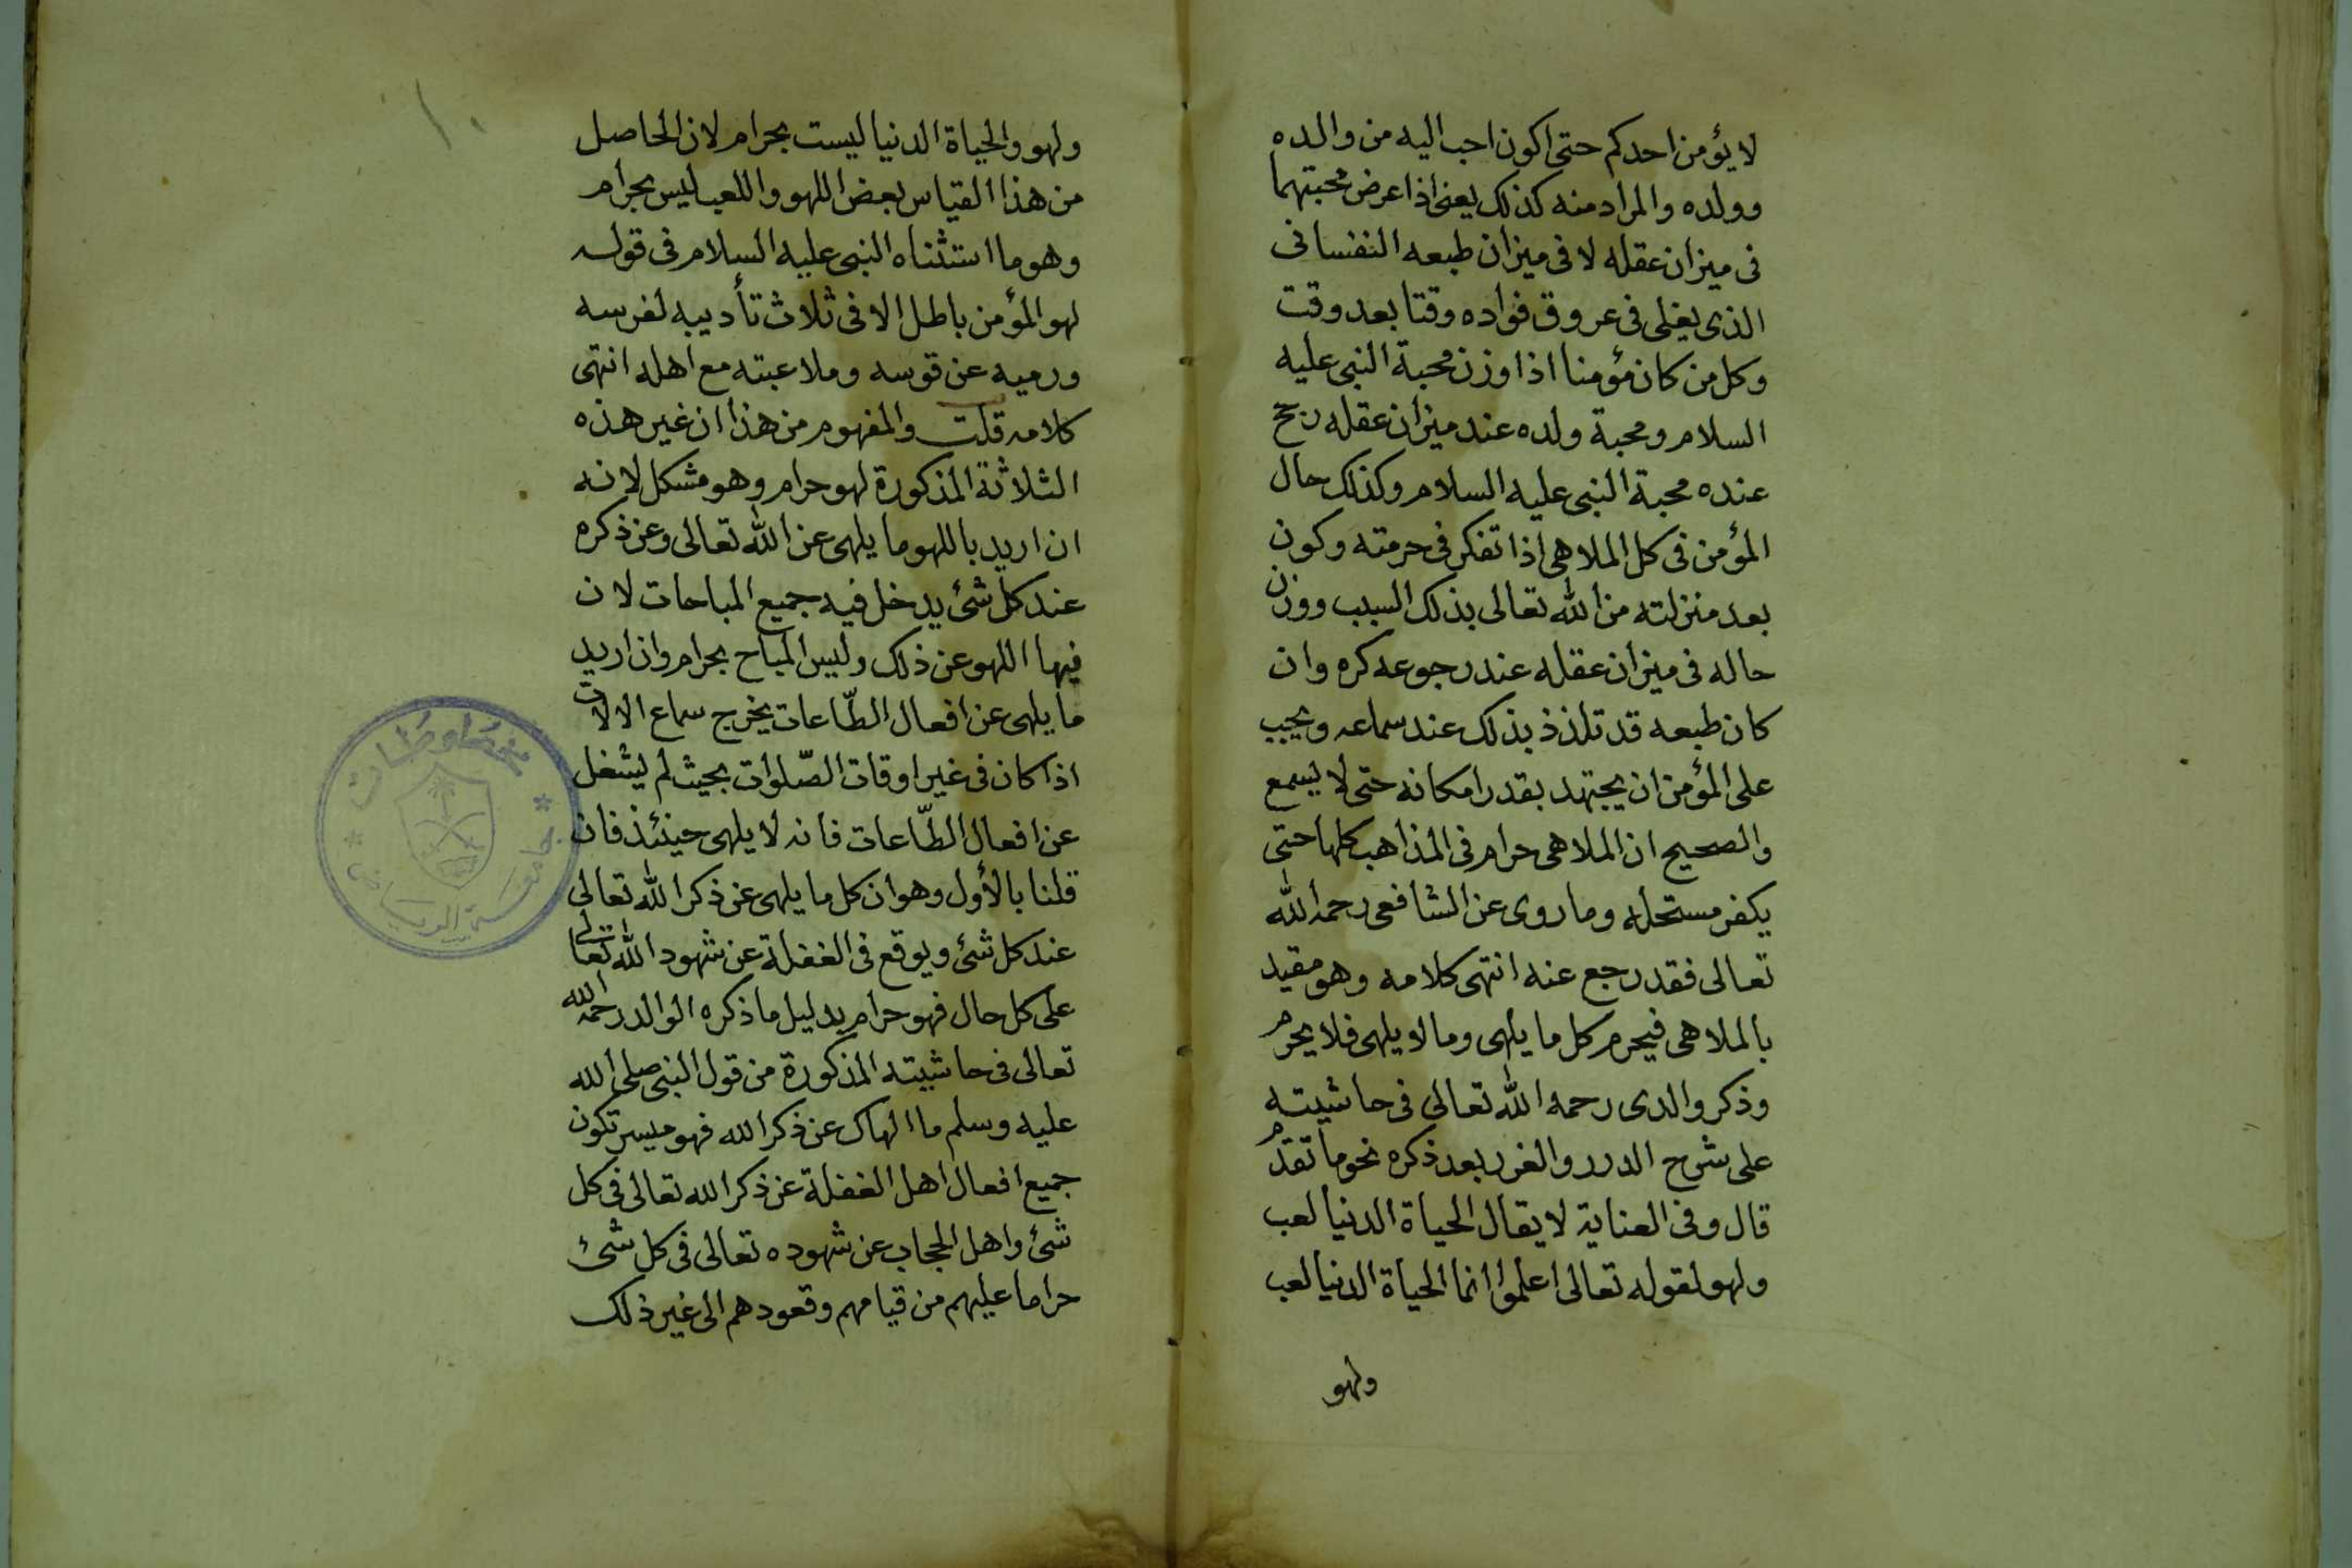 لا يؤمن احدكم حتى اكون احب اليه من والده
وولده والمراد منه كذلك يعنى اذا عرض محبتهما
فى ميزان عقله لا فى ميزان طبعه النفسانى
الذى يغلى فى عروق فواده وقتا بعد وقت
وكل من كان مؤمنا اذا وزن محبة النبى عليه
السلام ومحبة ولده عند ميزان عقله رجح
عنده محبة النبى عليه السلام وكذلك حال
المؤمن فى كل الملاهى اذا تفكر فى حرمته وكون
بعد منزلته من الله تعالى بذلك السبب ووزن
حاله فى ميزان عقله عند رجوعه كره وان
كان طبعه قد تلذذ بذلك عند سماعه ويجب
على المؤمن ان يجتهد بقدر امكانه حتى لا يسمع
والصحيح ان الملاهى حرام فى المذاهب كلها حتى
يكفر مستحله وما روى عن الشافعى رحمه الله
تعالى فقد رجع عنه انتهى كلامه وهو مقيد
بالملاهى فيحرم كل ما يلهى وما لا يلهى فلا يحرم
وذكر والدى رحمه الله تعالى فى حاشيته
على شرح الدرر والغرر بعد ذكره نحو ما تقدم
قال وفى العناية لا يقال الحياة الدنيا لعب
ولهو لقوله تعالى اعلموا انما الحياة الدنيا لعب
ولهو
١٠
ولهو والحياة الدنيا ليست بحرام لان الحاصل
من هذا القياس بعض اللهو واللعب ليس بحرام
وهو ما استثناه النبى عليه السلام فى قوله
لهو المؤمن باطل الا فى ثلاث تأديبه لفرسه
ورميه عن قوسه وملاعبته مع اهله انتهى
كلامه قلت والمفهوم من هذا ان غير هذه
الثلاثة المذكورة لهو حرام وهو مشكل لانه
ان اريد باللهو ما يلهى عن الله تعالى وعن ذكره
عند كل شئ يدخل فيه جميع المباحات لان
فيها اللهو عن ذلك وليس المباح بحرام وان اريد
ما يلهى عن افعال الطّاعات يخرج سماع الالات
اذا كان فى غير اوقات الصّلوات بحيث لم يشغل
عن افعال الطّاعات فانه لا يلهى حينئذ فان
قلنا بالأول وهو ان كل ما يلهى عن ذكر الله تعالى
عند كل شئ ويوقع فى الغفلة عن شهود الله تعالى
على كل حال فهو حرام بدليل ما ذكره الوالد رحمه الله
تعالى فى حاشيته المذكورة من قول النبى صلى الله
عليه وسلم ما الهاك عن ذكر الله فهو ميسر تكون
جميع افعال اهل الغفلة عن ذكر الله تعالى فى كل
شئ واهل الحجاب عن شهوده تعالى فى كل شئ
حراما عليهم من قيامهم وقعودهم الى غير ذلك
مخطوطات
جامعة الرياض